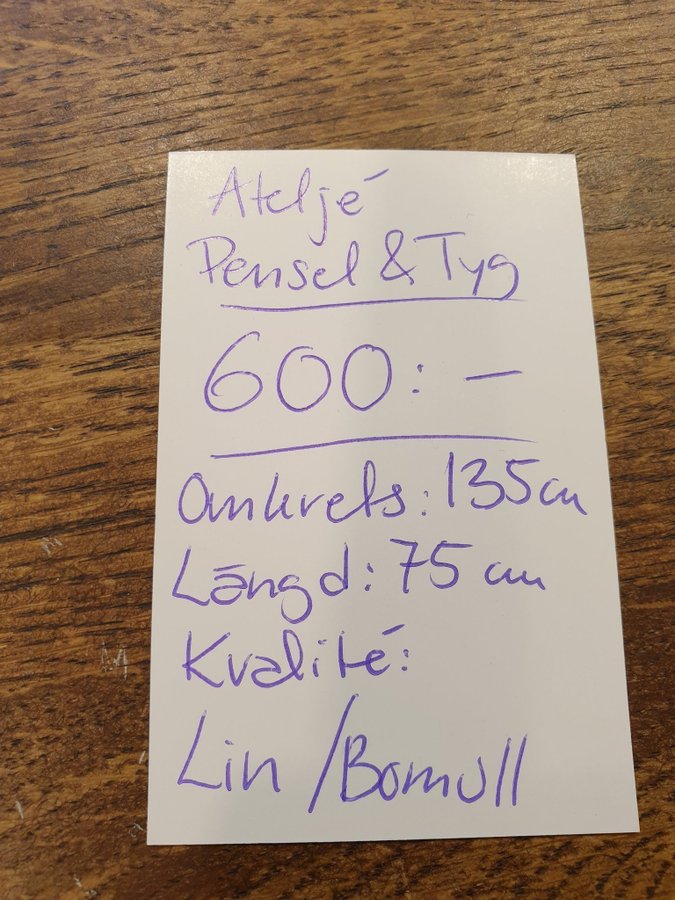 Ateljé
Pensel & Tyg
600:-
Omkrets: 135cm
Längd: 75 cm
Kvalité:
Lin / Bomull